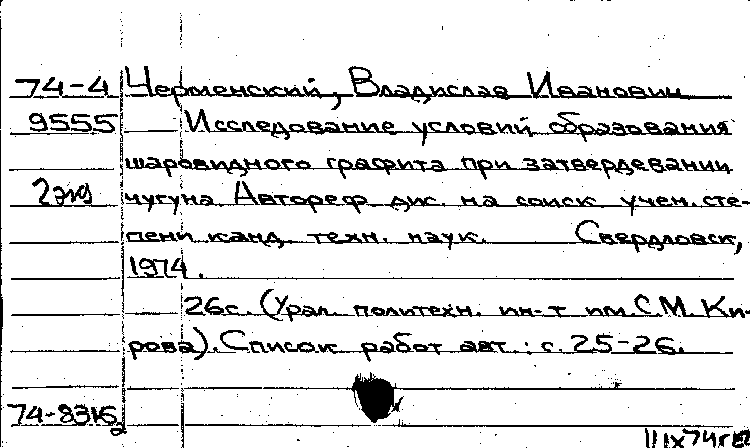 74-4 Черменский, Владислав Иванович
9555 Исследование условий образования
шаровидного графита при затвердевании
2экз чугуна. Автореф. дис. на соиск. учен. сте-
пени канд. техн. наук. Свердловск,
1974.
26с. (Урал. политехн. ин-т им. С.М. Ки-
рова). Список работ авт.: с. 25-26.